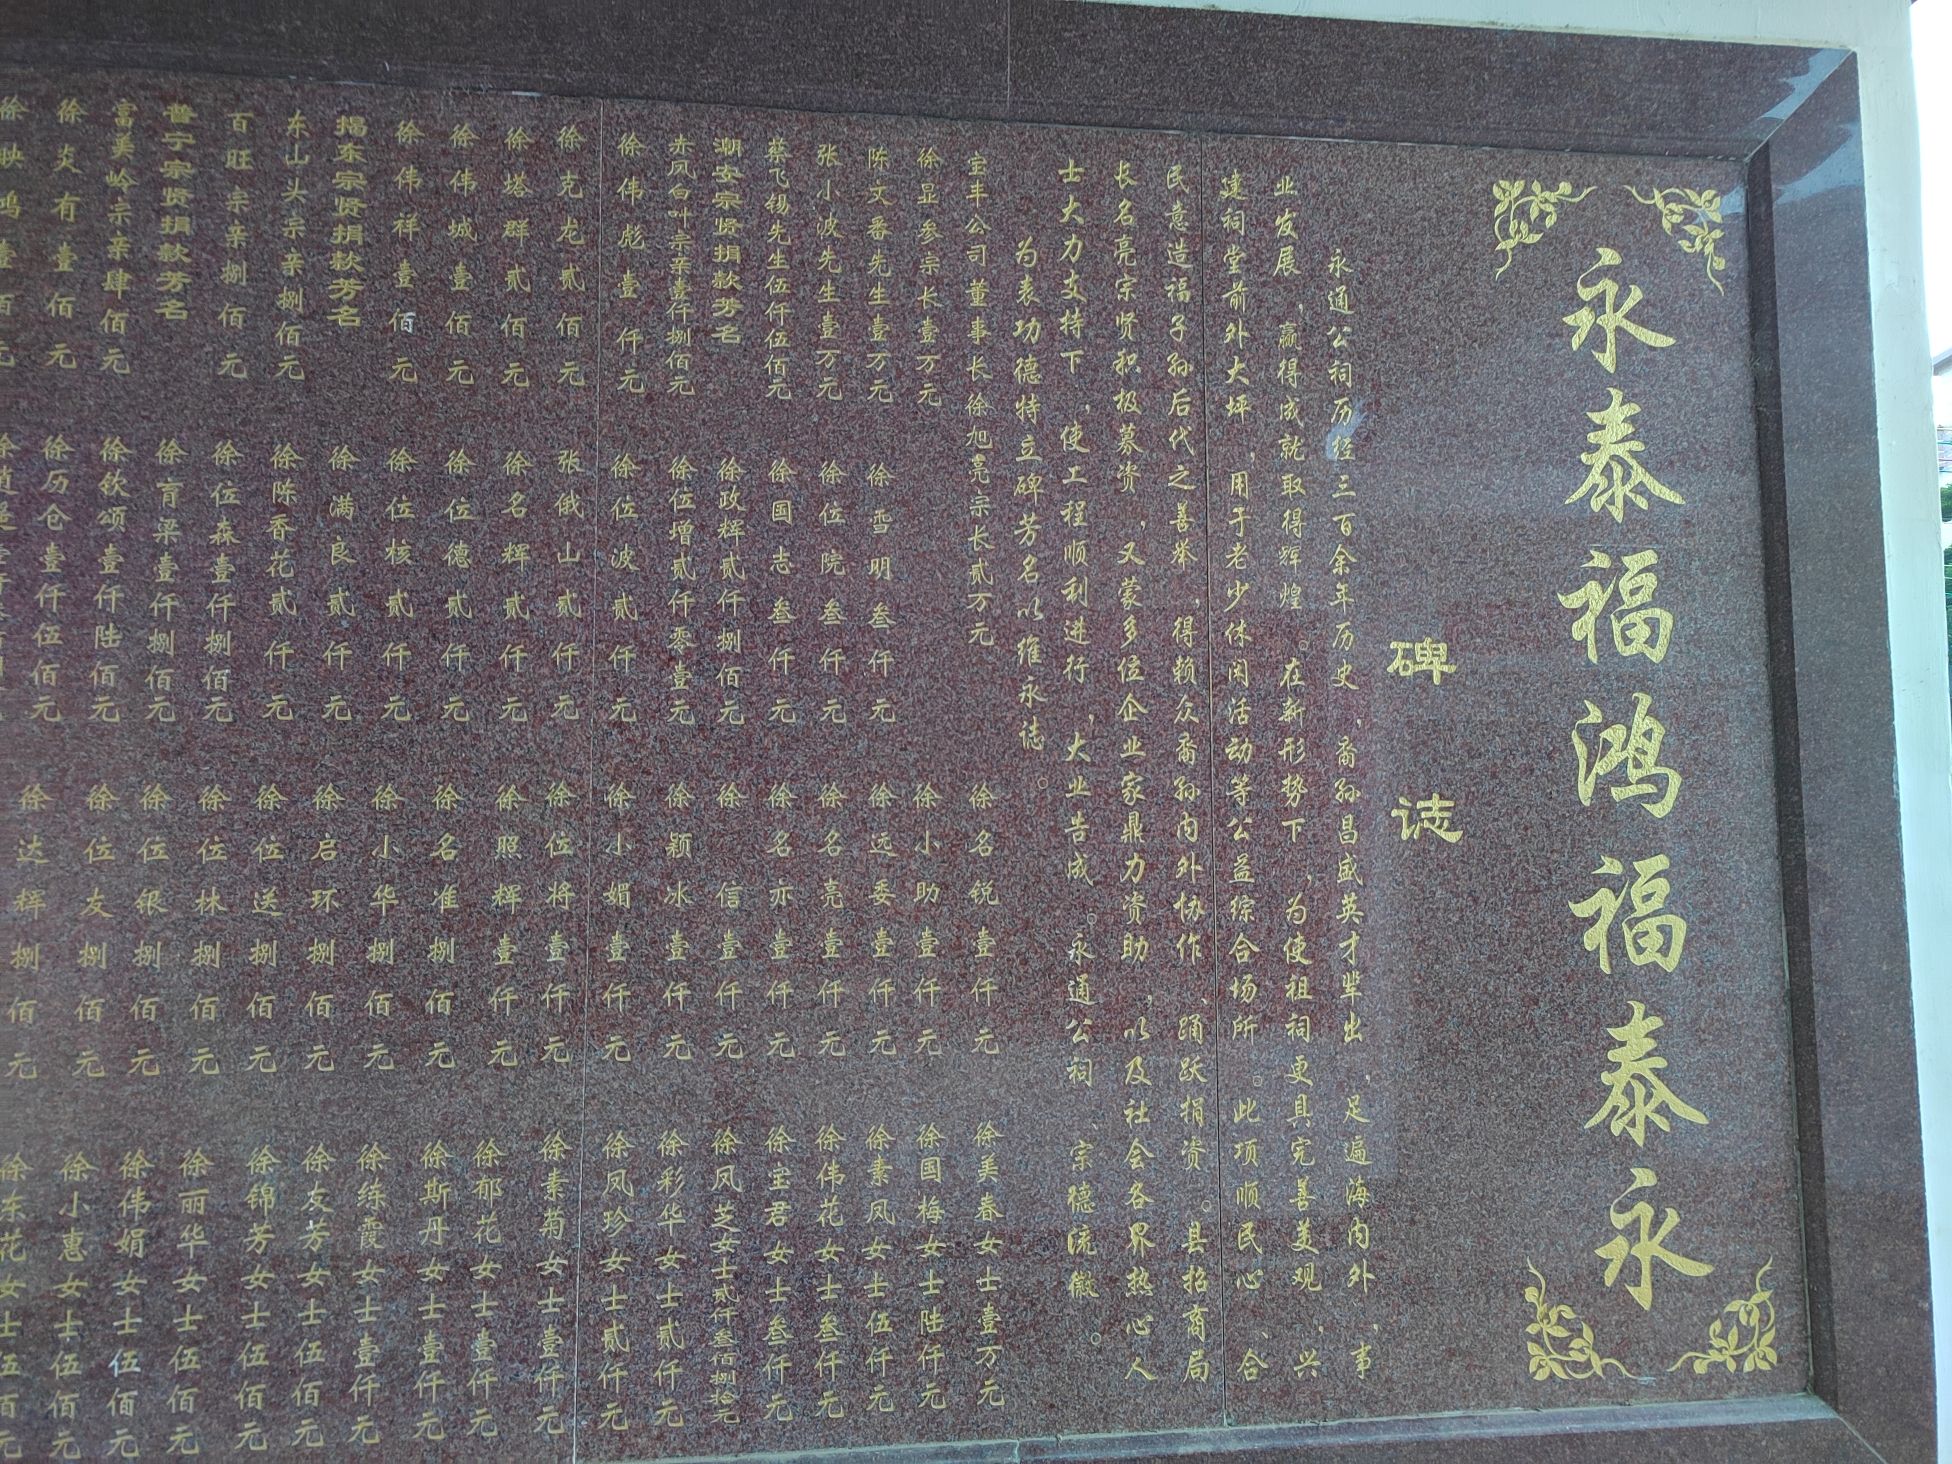 永泰福鸿福泰永
碑誌
永通公祠历经三百余年历史,裔孙昌盛英才辈出,足遍海内外,事
业发展,赢得成就取得辉煌。在新形势下,为使祖祠更具完善美观,兴
建祠堂前外大坪,用于老少休闲活动等公益综合场所。此项顺民心、合
民意造福子孙后代之善举,得赖众裔孙内外协作、踊跃捐资。县招商局
长名亮宗贤积极募资,又蒙多位企业家鼎力资助,以及社会各界热心人
士大力支持下,使工程顺利进行,大业告成。永通公祠、宗德流徽。
为表功德特立碑芳名以维永誌。
宝丰公司董事长徐旭亮宗长贰万元
徐显参宗长壹万元
陈文番先生壹万元
张小波先生壹万元
蔡飞锡先生伍仟伍佰元
潮安宗贤捐款芳名
赤凤白叶宗亲壹仟捌佰元
徐伟彪壹仟元
徐克龙贰佰元
徐塔群贰佰元
徐伟城壹佰元
徐伟祥壹佰元
揭东宗贤捐款芳名
东山头宗亲捌佰元
百旺宗亲捌佰元
普宁宗贤捐款芳名
富美岭宗亲肆佰元
徐炎有壹佰元
徐雪明叁仟元
徐位院叁仟元
徐国志叁仟元
徐政辉贰仟捌佰元
徐位增贰仟零壹元
徐位波贰仟元
张俄山贰仟元
徐名辉贰仟元
徐位德贰仟元
徐位核贰仟元
徐满良贰仟元
徐陈香花贰仟元
徐位森壹仟捌佰元
徐育梁壹仟捌佰元
徐钦颂壹仟陆佰元
徐历仓壹仟伍佰元
徐名锐壹仟元
徐小助壹仟元
徐远委壹仟元
徐名亮壹仟元
徐名亦壹仟元
徐信壹仟元
徐颖冰壹仟元
徐小媚壹仟元
徐位将壹仟元
徐照辉壹仟元
徐名准捌佰元
徐小华捌佰元
徐启环捌佰元
徐位送捌佰元
徐位林捌佰元
徐位银捌佰元
徐位友捌佰元
徐达辉捌佰元
徐美春女士壹万元
徐国梅女士陆仟元
徐素凤女士伍仟元
徐伟花女士叁仟元
徐宝君女士叁仟元
徐凤芝女士贰仟叁佰捌拾元
徐彩华女士贰仟元
徐凤珍女士贰仟元
徐素菊女士壹仟元
徐郁花女士壹仟元
徐斯丹女士壹仟元
徐练霞女士壹仟元
徐友芳女士伍佰元
徐锦芳女士伍佰元
徐丽华女士伍佰元
徐伟娟女士伍佰元
徐小惠女士伍佰元
徐东花女士伍百元